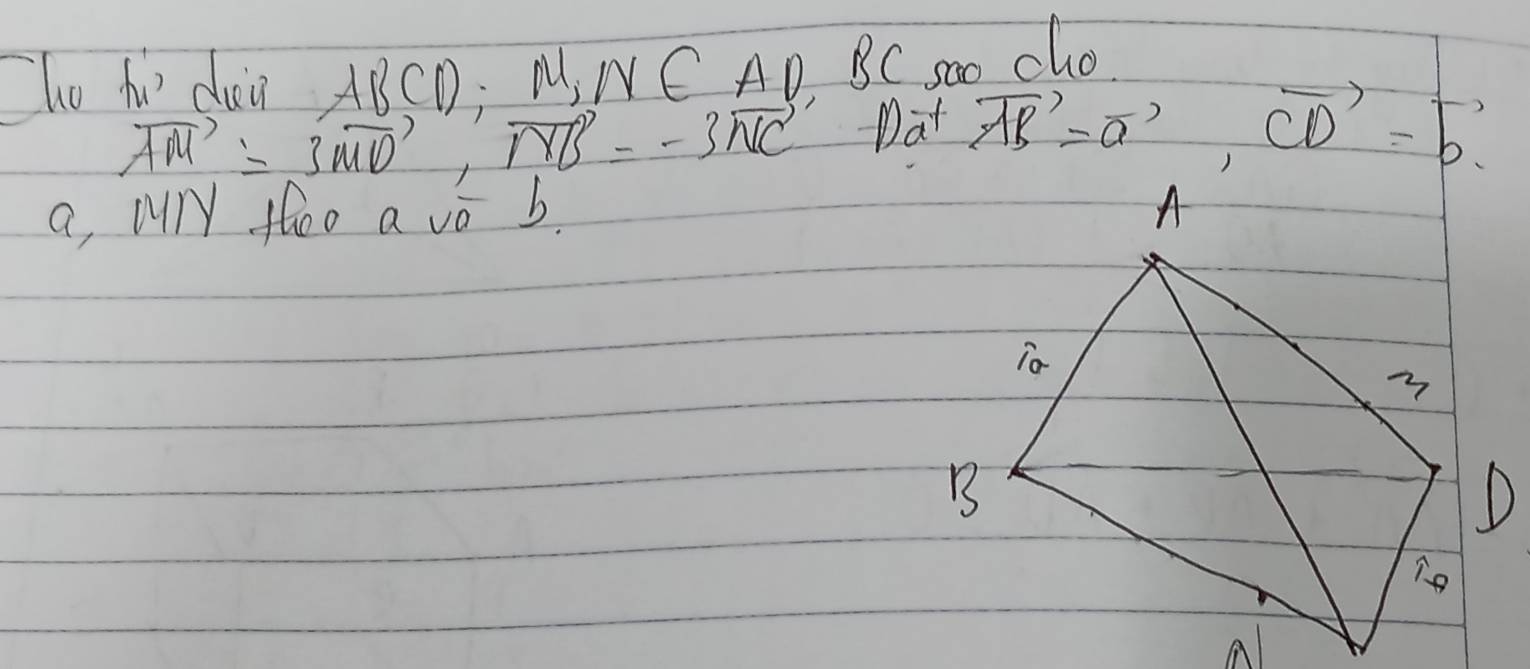 Cho tứ diện ABCD; M, N ∈ AD, BC sao cho
AM⃗ = 3MD⃗, NB⃗ = -3NC⃗ Đặt AB⃗ = a⃗, CD⃗ = b⃗.
a, MN theo a và b.
A
a⃗
M
B
D
b⃗
N